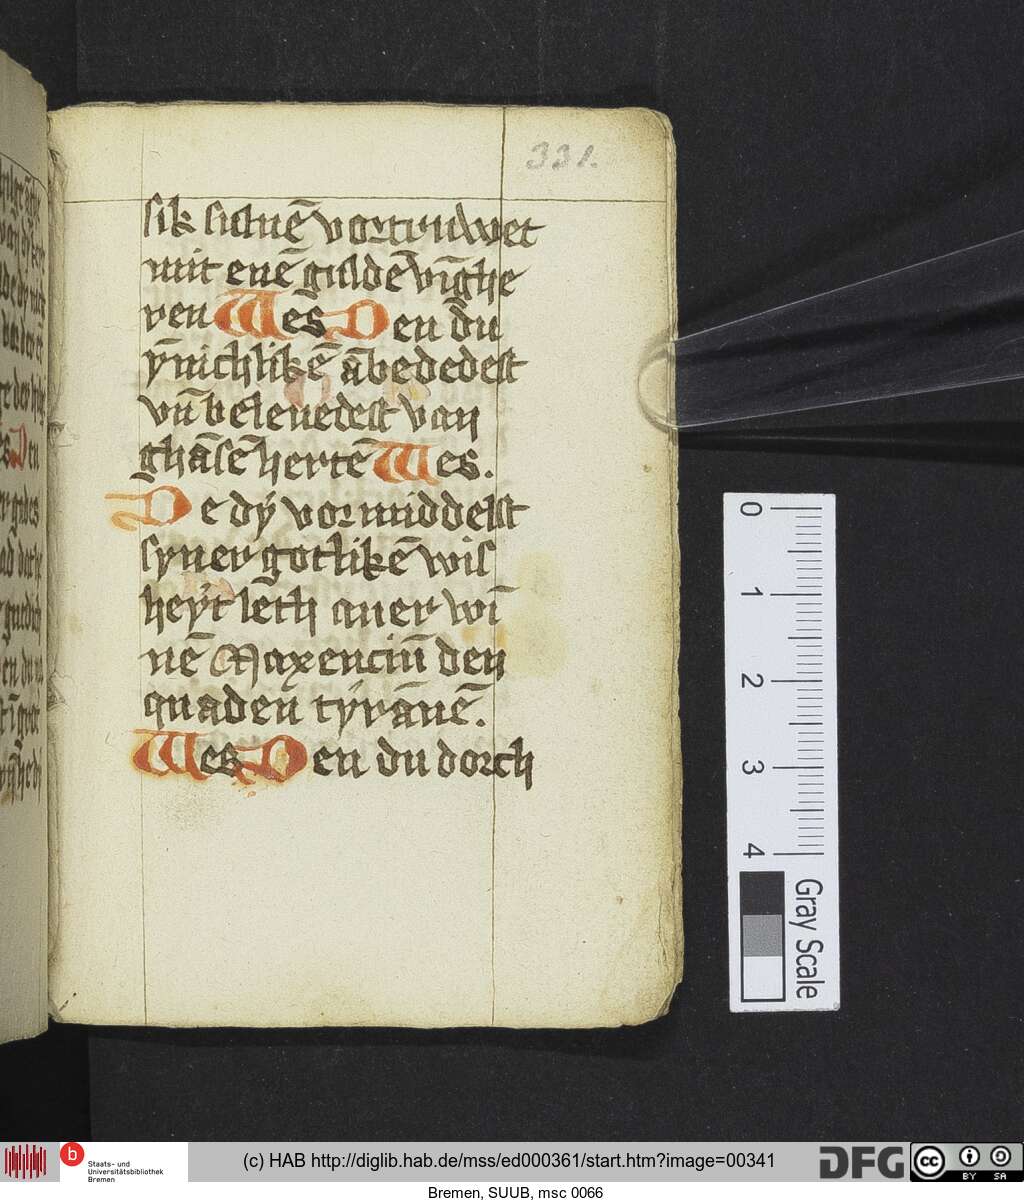 331.
sik suluē vortruwet
mit enē guldē vīghe
ren Wes Den du
ȳnichlikē ābededest
vn̄ beleuedest van
ghāsē hertē Wes.
De dÿ vormiddelst
syner gotlikē wis
heÿt lēth auer wī
nē Maxenciū den
quaden tÿrānē.
Wes Den du dorch
0
1
2
3
4
Gray Scale
b
Staats- und
Universitätsbibliothek
Bremen
(c) HAB http://diglib.hab.de/mss/ed000361/start.htm?image=00341
DFG
cc
BY SA
Bremen, SUUB, msc 0066